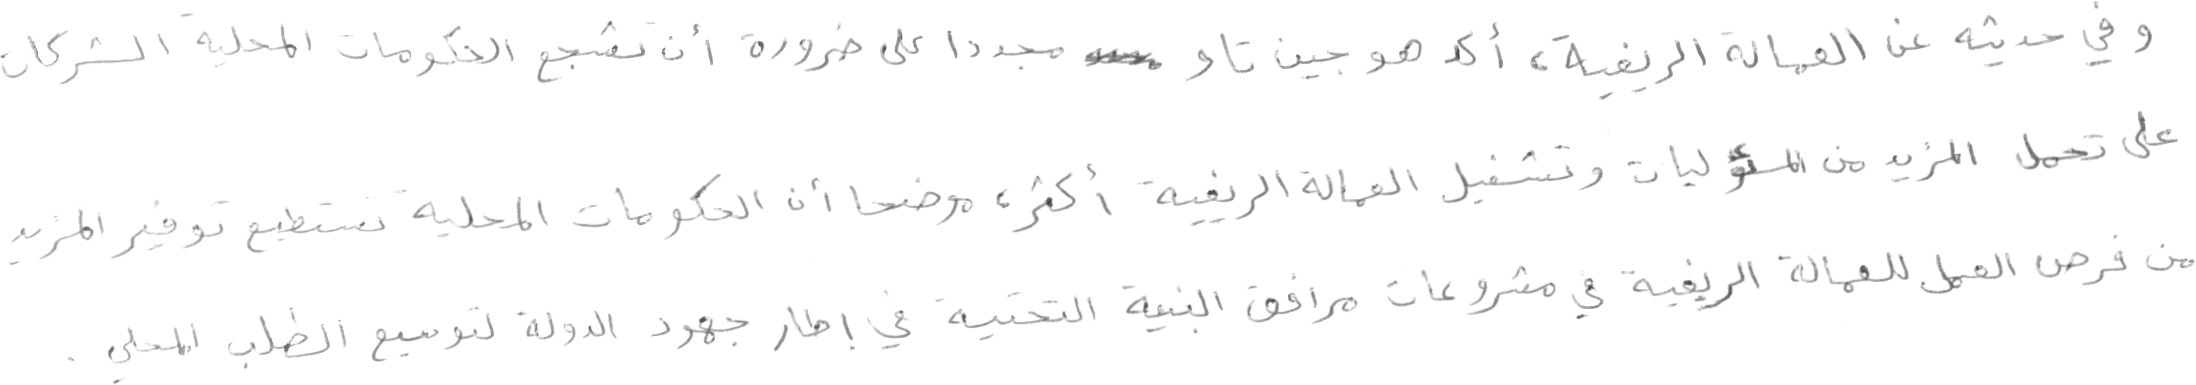 وفي حديثه عن العمالة الريفية، أكد هو جين تاو مجددا على ضرورة أن تشجع الحكومات المحلية الشركات
على تحمل المزيد من المسؤوليات وتشغيل العمالة الريفية أكثر، موضحا أن الحكومات المحلية تستطيع توفير المزيد
من فرص العمل للعمالة الريفية في مشروعات مرافق البنية التحتية في إطار جهود الدولة لتوسيع الطلب المحلي .